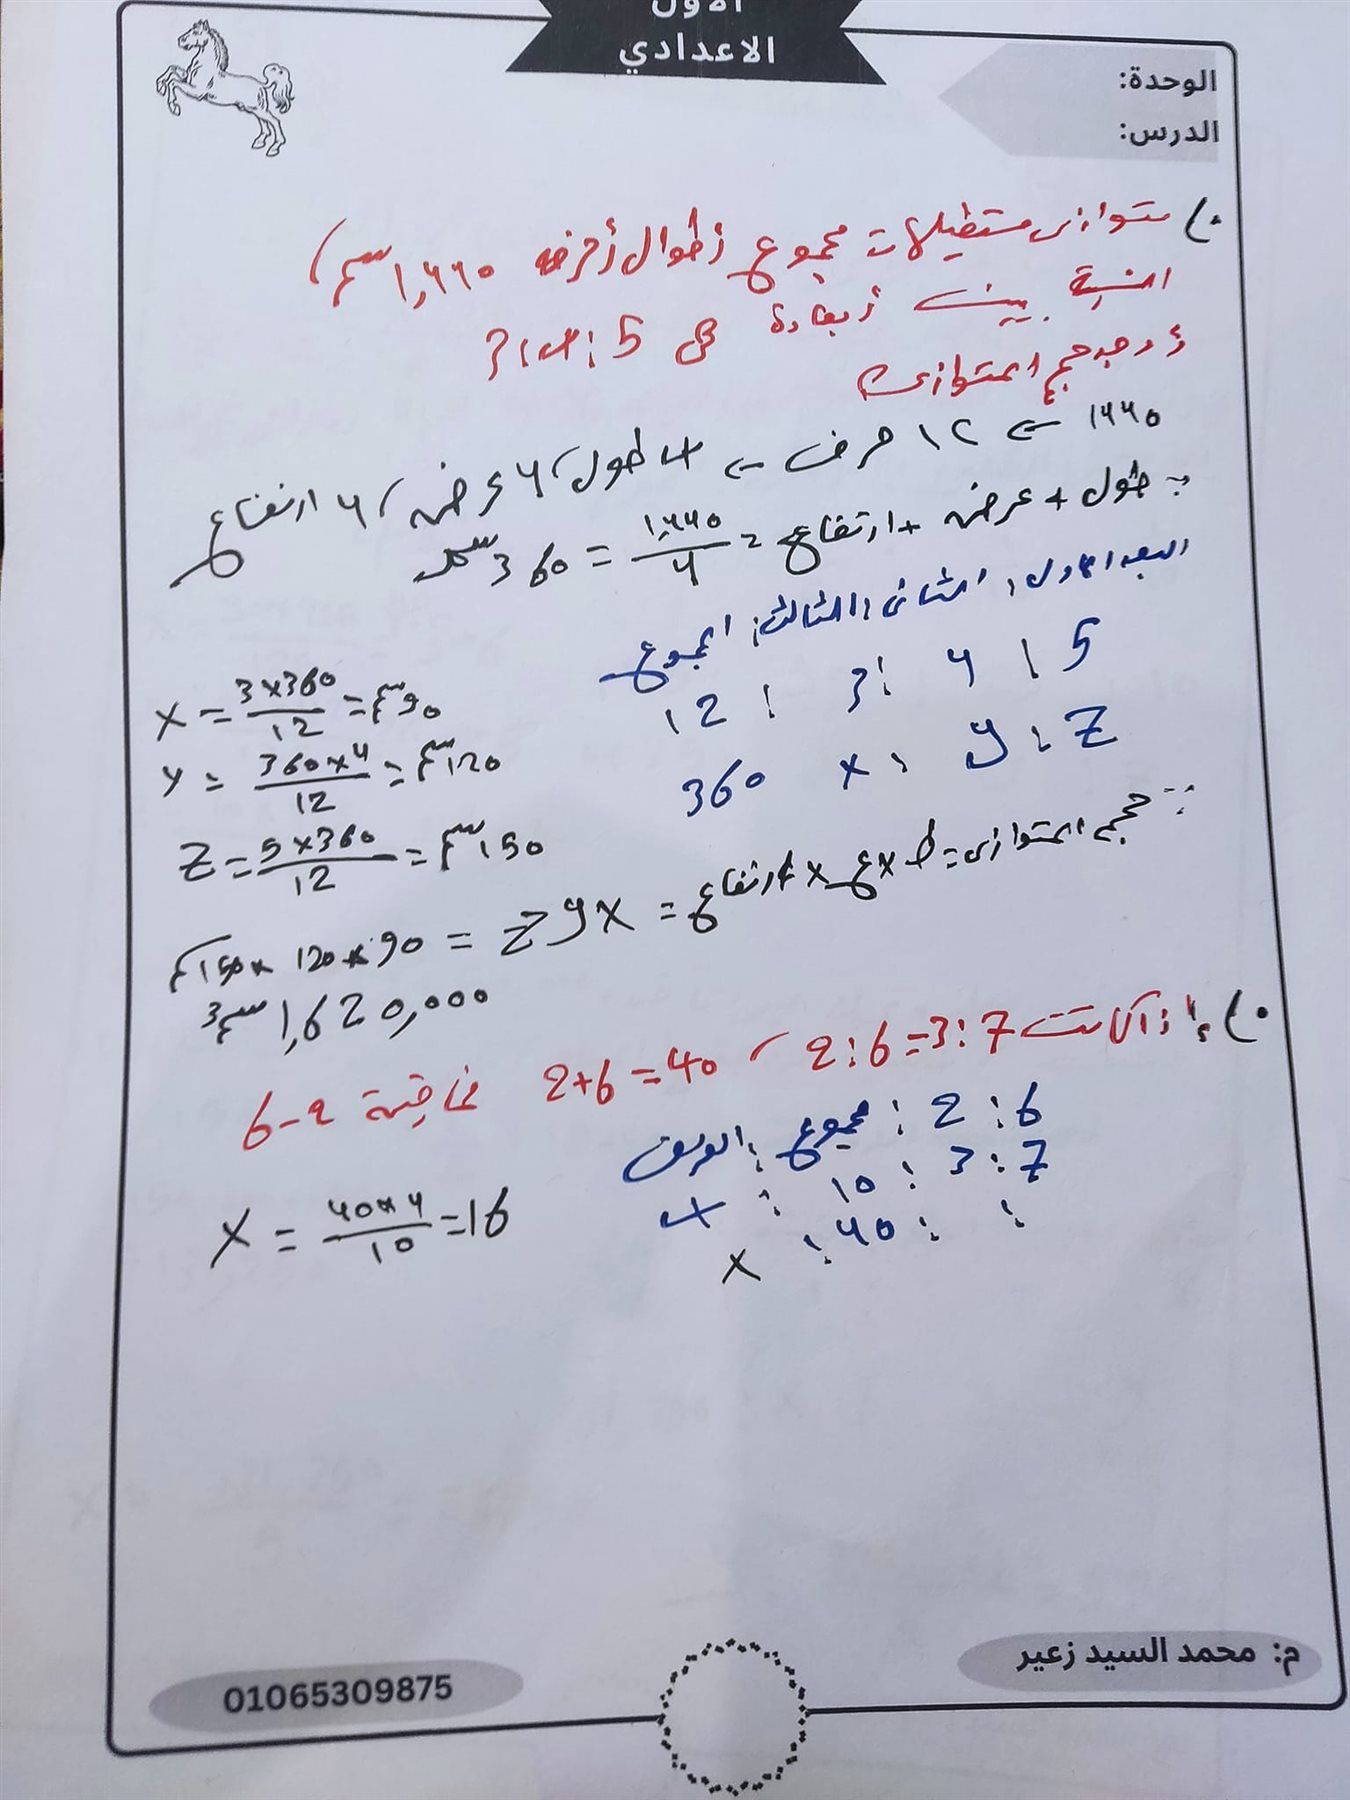 الأول
الاعدادي
الوحدة:
الدرس:
٠) متوازى مستطيلات مجموع أطوال أحرفه ١,٤٤٠ سم،
النسبة بين أبعاده هى 5:4:3
أوجد حجم المتوازى
١٤٤٠ ← ١٢ حرف ← ٤ طول، ٤ عرض، ٤ ارتفاع
∴ طول + عرض + ارتفاع = 1,440/4 = 360 سم
البعد الأول: الثانى: الثالث: المجموع
5 : 4 : 3 : 12
Z : y : x 360
X = 3×360/12 = 90 سم
Y = 360×4/12 = 120 سم
Z = 5×360/12 = 150 سم
∵ حجم المتوازى = ط × ع × ارتفاع = X y Z = 90 × 120 × 150 سم
1,620,000 سم3
٠) إذا كانت 2:6=3:7 ، 2+6=40 فما قيمة 6-2
6 : 2 : مجموع : الفرق
7 : 3 : 10 : 4
: : 40 : X
X = 40×4/10 = 16
م: محمد السيد زعير
01065309875